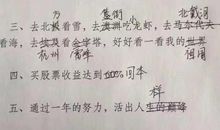 方 盱眙 北戴河
三、去北极看雪,去澳洲吃龙虾,去马尔代夫
看海,去埃及看金字塔,好好看一看我的世界
杭州 雷峰 祖国
四、买股票收益达到100%回本
样
五、通过一年的努力,活出人生的巅峰